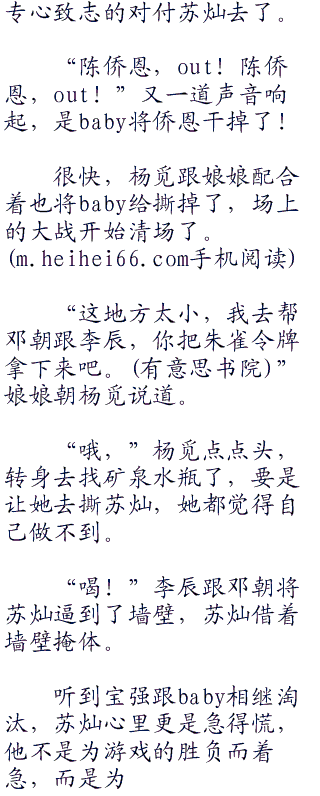 专心致志的对付苏灿去了。
“陈侨恩，out！陈侨
恩，out！”又一道声音响
起，是baby将侨恩干掉了！
很快，杨觅跟娘娘配合
着也将baby给撕掉了，场上
的大战开始清场了。
(m.heihei66.com手机阅读)
“这地方太小，我去帮
邓朝跟李辰，你把朱雀令牌
拿下来吧。(有意思书院)”
娘娘朝杨觅说道。
“哦，”杨觅点点头，
转身去找矿泉水瓶了，要是
让她去撕苏灿，她都觉得自
己做不到。
“喝！”李辰跟邓朝将
苏灿逼到了墙壁，苏灿借着
墙壁掩体。
听到宝强跟baby相继淘
汰，苏灿心里更是急得慌，
他不是为游戏的胜负而着
急，而是为